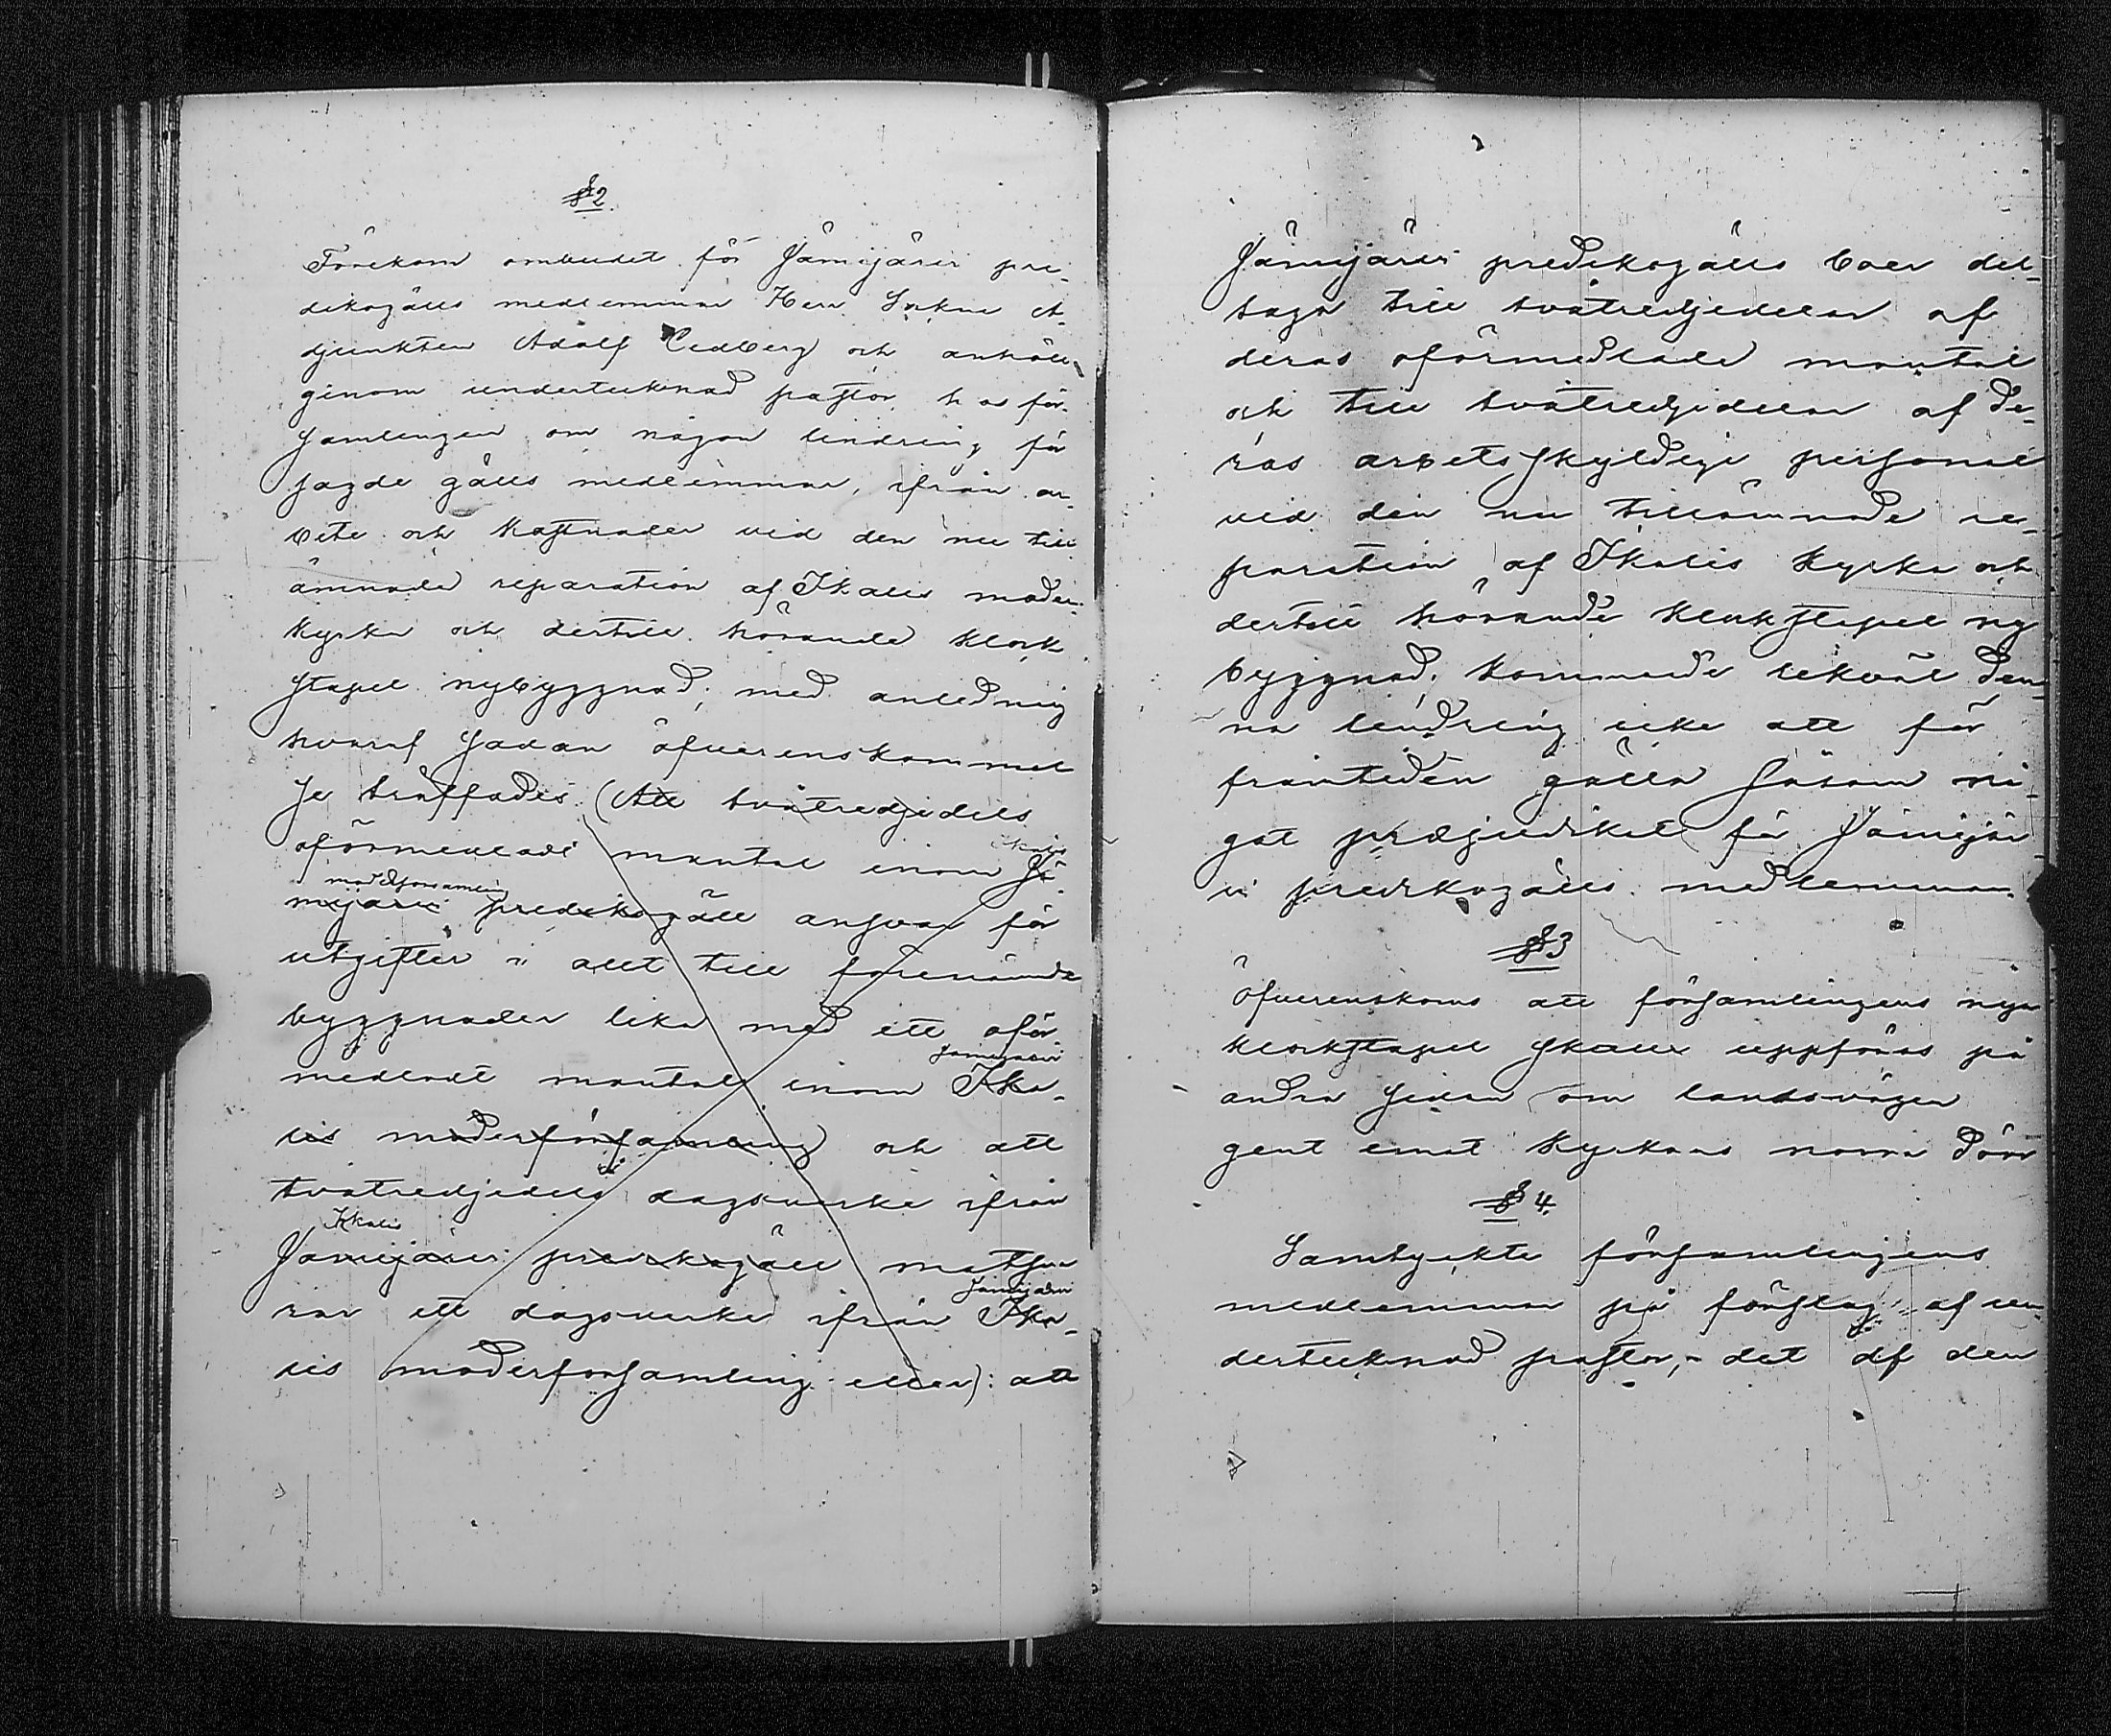 §2.
Förekom ombudet för Jämijärvi pre-
dikogälls medlemmar Herr Sokne A-
djunkten Adolf Cedberg och anhöll
genom undertecknad pastor hos för-
samlingen om någon lindring för
sagde gälls medlemmar, ifrån ar-
bete och kostnader vid den nu till
ämnade reparation af Ikalis moder-
kyrka och dertill hörande klock
stapel nybyggnad; med anledning
hvaraf sådan öfverenskommel
se träffades (Att tvåtredjedels
Ikalis
oförmedladt mantal inom Jä-
moderförsamling
mijärvi predikogäll ansvar för
utgifter i allt till förenämnde
byggnader lika med ett oför-
Jämijärvi
medladt mantal inom Ika-
lis moderförsamling och att
tvåtredjedels dagsverke ifrån
Ikalis
Jämijärvi predikogäll motsva
Jämijärvi
rar ett dagsverke ifrån Ika-
lis moderförsamling eller): att
Jämijärvi predikogälls boer del-
taga till tvåtredjedelar af
deras oförmedlade mantal
och till tvåtredjedelar af de-
ras arbetsskyldige personal
vid den nu tillämnade re-
paration af Ikalis kyrka och
dertill hörande klockstapel ny
byggnad; kommande likväl den-
na lindring icke att för
framtiden gälla såsom nå-
got præjudikat för Jämijär-
vi predikogälls medlemmar.
§3
Öfverenskoms att församlingens nya
klockstapel skulle uppföras på
andra sidan om landsvägen
gent emot kyrkans norra dörr
§4.
Samtyckte församlingens
medlemmar på förslag af un-
dertecknad pastor, det af den